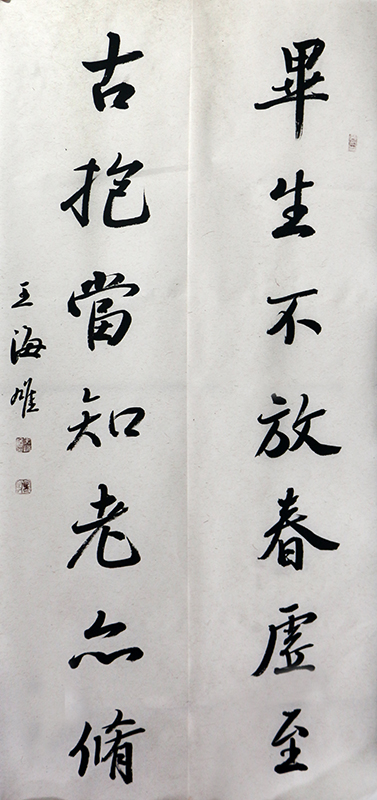 畢生不放春虛至
古抱當知老亦脩
王海雄